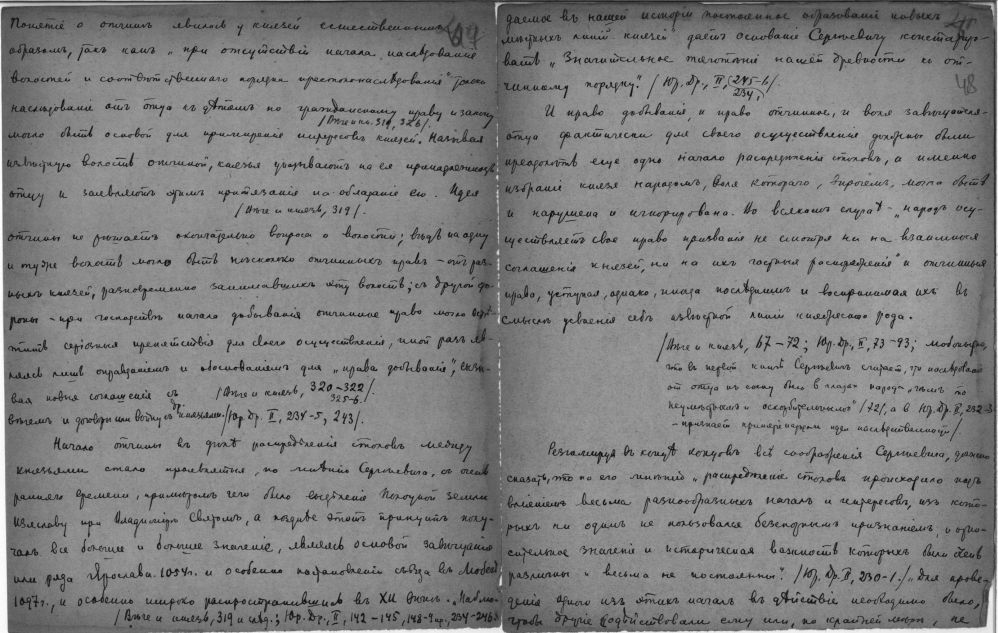 Понятіе о отчинѣ явилось у князей естественнымъ 47
образомъ, такъ какъ „при отсутствіи начала наслѣдованія
волостей и соотвѣтственнаго порядка престолонаслѣдованія" только
наслѣдованіе отъ отца къ дѣтямъ по гражданскому праву и закону
/Вѣче и кн. 319, 326/.
могло быть основой для примиренія интересовъ князей. Называя
извѣстную волость „отчиной", князья указываютъ на ея принадлежность
отцу и заявляютъ этимъ притязанія на обладаніе ею. Идея
/Вѣче и князь, 319/.
отчины не рѣшаетъ окончательно вопроса о волости; вѣдь на одну
и ту же волость могло быть нѣсколько отчинныхъ правъ – отъ раз-
ныхъ князей, разновременно занимавшихъ эту волость; съ другой сто-
роны – при господствѣ начала добыванія отчинное право могло встрѣ-
тить серіозныя препятствія для своего осуществленія, иной разъ яв-
ляясь лишь оправданіемъ и обоснованіемъ для „права добыванія",
вая новыя соглашенія съ /Вѣче и князь, 320–322/
325-6.
вѣчемъ и договоры или войну съ др. князьями. /Юр. Др. II, 234-5, 243/.
Начало отчины въ дѣлѣ распредѣленія столовъ между
князьями стало проявляться, по мнѣнію Сергѣевича, съ очень
ранняго времени, примѣромъ чего было выдѣленіе Полоцкой земли
Изяславу при Владимірѣ Святомъ, а позднѣе этотъ принципъ полу-
чалъ все большее и большее значеніе, являясь основой завѣщанія
или ряда Ярослава 1054 г. и особенно постановленій съѣзда въ Любечѣ
1097 г., и особенно широко распространившись въ XII вѣкѣ. „Наблю-
/Вѣче и князь, 319 и слѣд.; Юр. Др., II, 142–145, 148-9 пр., 234-246/
даемое въ нашей исторіи постоянное образованіе новыхъ
мѣстныхъ линій князей" даетъ основаніе Сергѣевичу констатиро-
вать „значительное тяготѣніе нашей древности къ от-
чинному порядку". /Юр. Др., II, 245-6/. 48
234,
И право добыванія, и право отчинное, и воля завѣщателя-
отца фактически для своего осуществленія должны были
преодолѣть еще одно начало распредѣленія столовъ, а именно
избраніе князя народомъ, воля котораго, впрочемъ, могла быть
и нарушена и игнорирована. Во всякомъ случаѣ – „народъ осу-
ществляетъ свое право призванія не смотря ни на взаимныя
соглашенія князей, ни на ихъ частныя распоряженія" и отчинныя
права, уступая, однако, иногда послѣднимъ и воспринимая ихъ въ
смыслѣ усвоенія себѣ извѣстной линіи княжескаго рода.
/Вѣче и князь, 67–72; Юр. Др., II, 73–93; любопытно,
что въ первой книгѣ Сергѣевичъ считаетъ, что наслѣдованіе
отъ отца къ сыну было въ глазахъ народа „чѣмъ-то
неумѣстнымъ и оскорбительнымъ" /72/, а въ Юр. Др. II, 232-3
– признаетъ идеи наслѣдственности/.
Резюмируя въ концѣ концовъ всѣ соображенія Сергѣевича, должно
сказать, что по его мнѣнію „распредѣленіе столовъ происходило подъ
вліяніемъ весьма разнообразныхъ началъ и интересовъ, изъ кото-
рыхъ ни одинъ не пользовался безспорнымъ признаніемъ и отно-
сительное значеніе и историческая важность которыхъ были очень
различны и весьма не постоянны". /Юр. Др. II, 230-1./ „Для прове-
денія одного изъ этихъ началъ въ дѣйствіе необходимо было,
чтобы другія содѣйствовали ему или, по крайней мѣрѣ, не